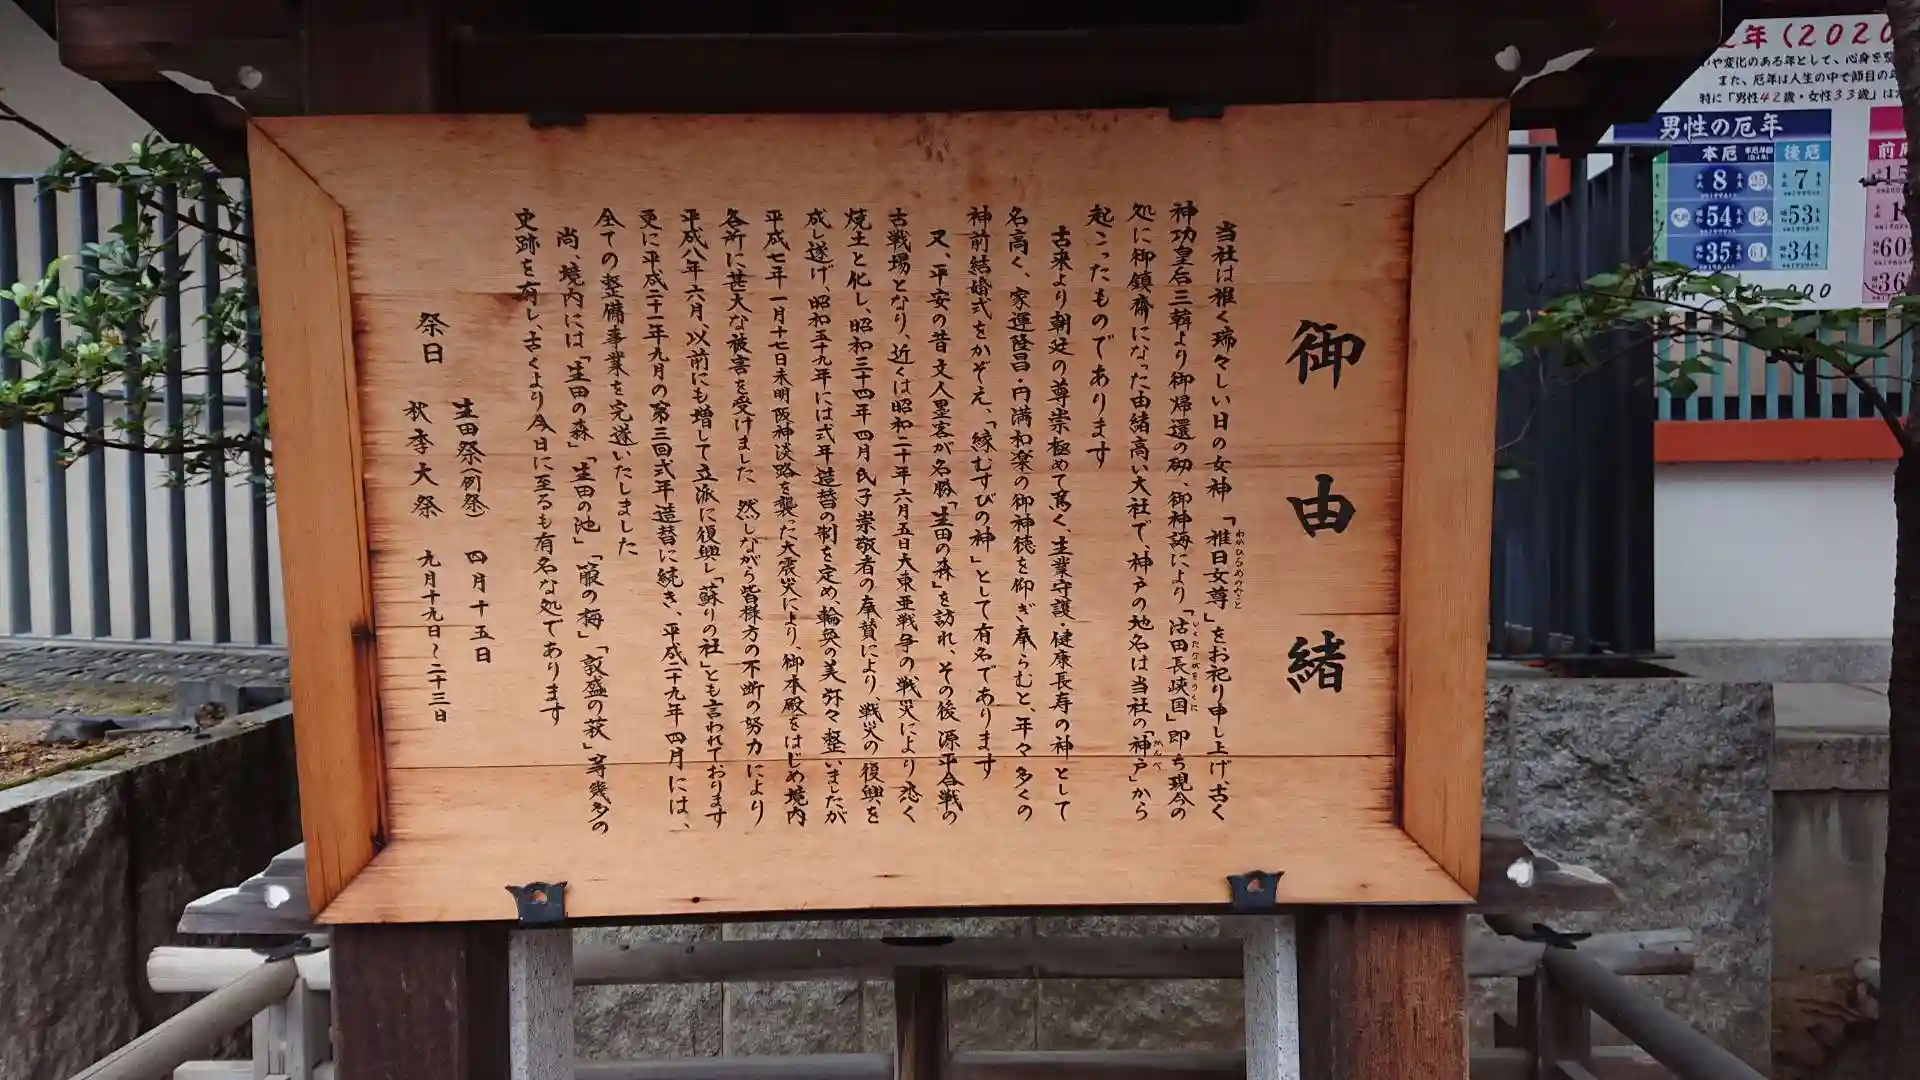 御由緒
当社は稚く瑞々しい日の女神「稚日女尊」をお祀り申し上げ、古く
わかひるめのみこと
神功皇后三韓より御帰還の砌、御神誨により「活田長峡国」即ち現今の
いくたながをのくに
処に御鎮斎になった由緒高い大社で、神戸の地名は当社の「神戸」から
かんべ
起こったものであります
古来より朝廷の尊崇極めて篤く、生業守護・健康長寿の神として
名高く、家運隆昌・円満和楽の御神徳を仰ぎ奉らむと、年々多くの
神前結婚式をかぞえ、「縁むすびの神」として有名であります
又、平安の昔文人墨客が名勝「生田の森」を訪れ、その後源平合戦の
古戦場となり、近くは昭和二十年六月五日大東亜戦争の戦災により悉く
焼土と化し、昭和三十四年四月氏子崇敬者の奉賛により、戦災の復興を
成し遂げ、昭和五十九年には式年造替の制を定め、輪奐の美弥々整いましたが
平成七年一月十七日未明阪神淡路を襲った大震災により、御本殿をはじめ境内
各所に甚大な被害を受けました 然しながら皆様方の不断の努力により
平成八年六月、以前にも増して立派に復興し「蘇りの社」とも言われております
更に平成二十一年九月の第三回式年造替に続き、平成二十九年四月には、
全ての整備事業を完遂いたしました
尚、境内には「生田の森」「生田の池」「箙の梅」「敦盛の萩」等幾多の
史跡を有し、古くより今日に至るも有名な処であります
祭日
生田祭(例祭) 四月十五日
秋季大祭 九月十九日～二十三日
年(2020
や変化のある年として、心身を
また、厄年は人生の中で節目の年
特に「男性42歳・女性33歳」は
男性の厄年
本厄 後厄
8 25 7
54 42 53
35 61 34
前厄
60
36